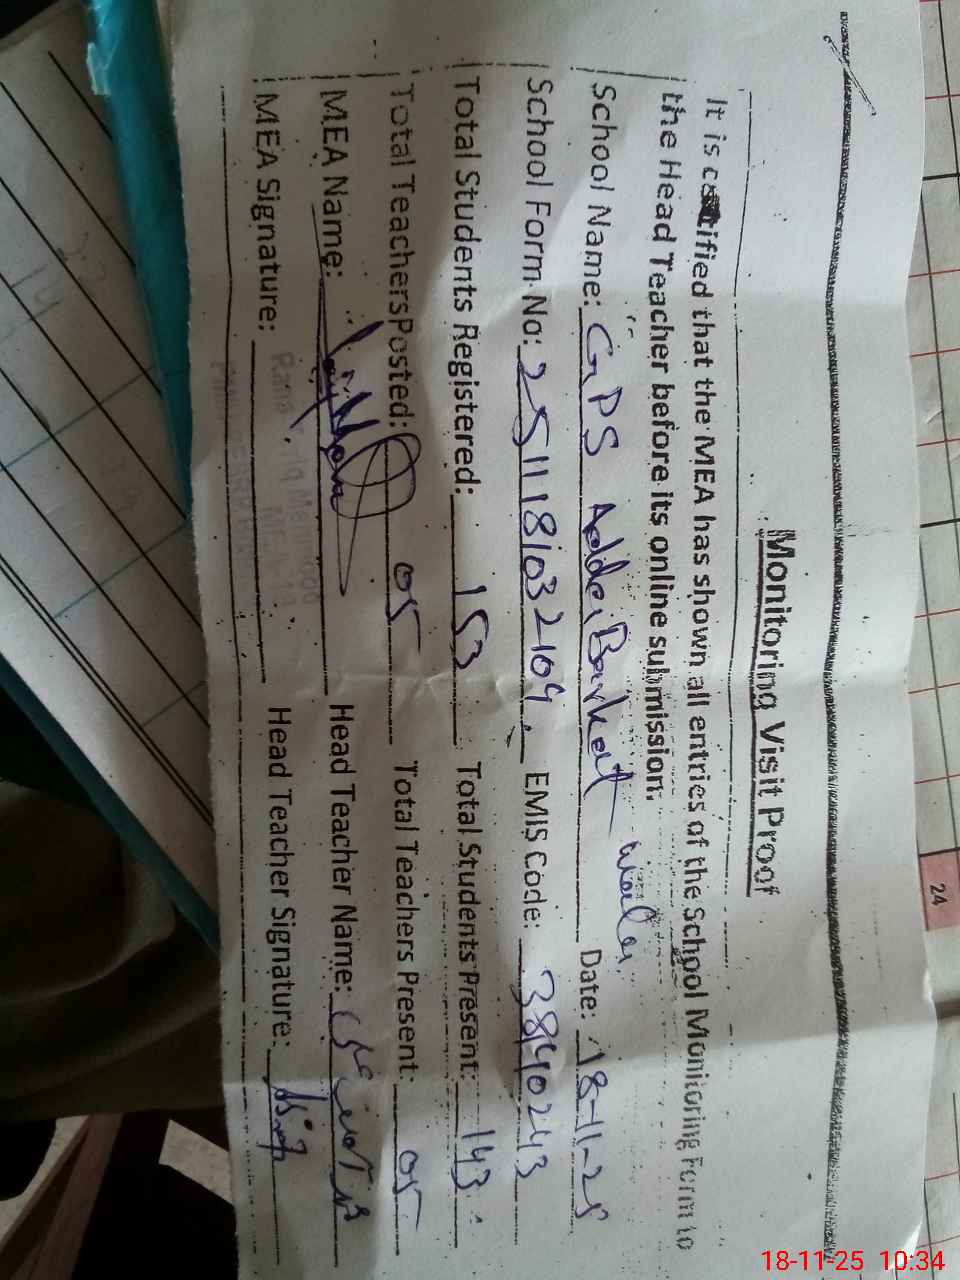 Monitoring Visit Proof
It is certified that the MEA has shown all entries of the School Monitoring Form to
the Head Teacher before its online submission.
School Name: GPS Adda Barkat Wala Date: 18-11-25
School Form No: 2511181032109 EMIS Code: 3840243
Total Students Registered: 153 Total Students Present: 143
Total Teachers Posted: 05 Total Teachers Present: 05
MEA Name: Head Teacher Name:
MEA Signature: Head Teacher Signature:
24
18-11-25 10:34